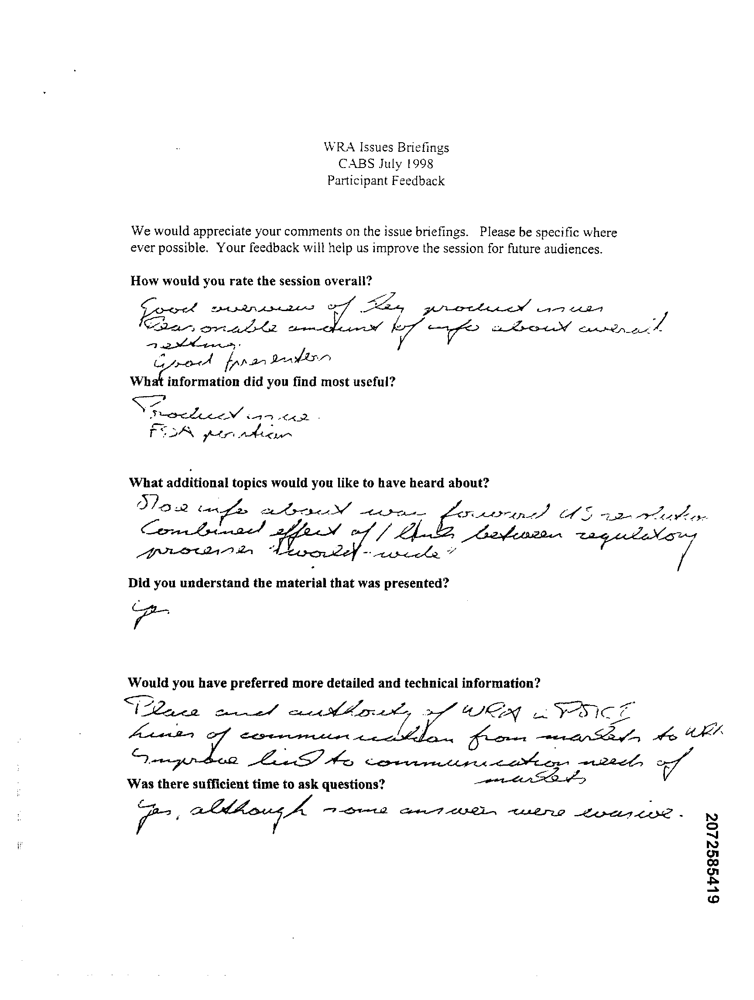 WRA Issues Briefings
CABS July 1998
Participant Feedback
We would appreciate your comments on the issue briefings. Please be specific where
ever possible. Your feedback will help us improve the session for future audiences.
How would you rate the session overall?
Good overview of key product issues
Reasonable amount of info about overall
setting.
Good presenters
What information did you find most useful?
Product issue.
FDA
What additional topics would you like to have heard about?
More info about way forward US resolution
Combined effect of / links between regulatory
processes "world-wide"
Did you understand the material that was presented?
yes
Would you have preferred more detailed and technical information?
Place and authority of WRA in
Lines of communication from markets to WRA
Improve link to communication needs of
markets
Was there sufficient time to ask questions?
Yes, although some answers were evasive.
2072585419